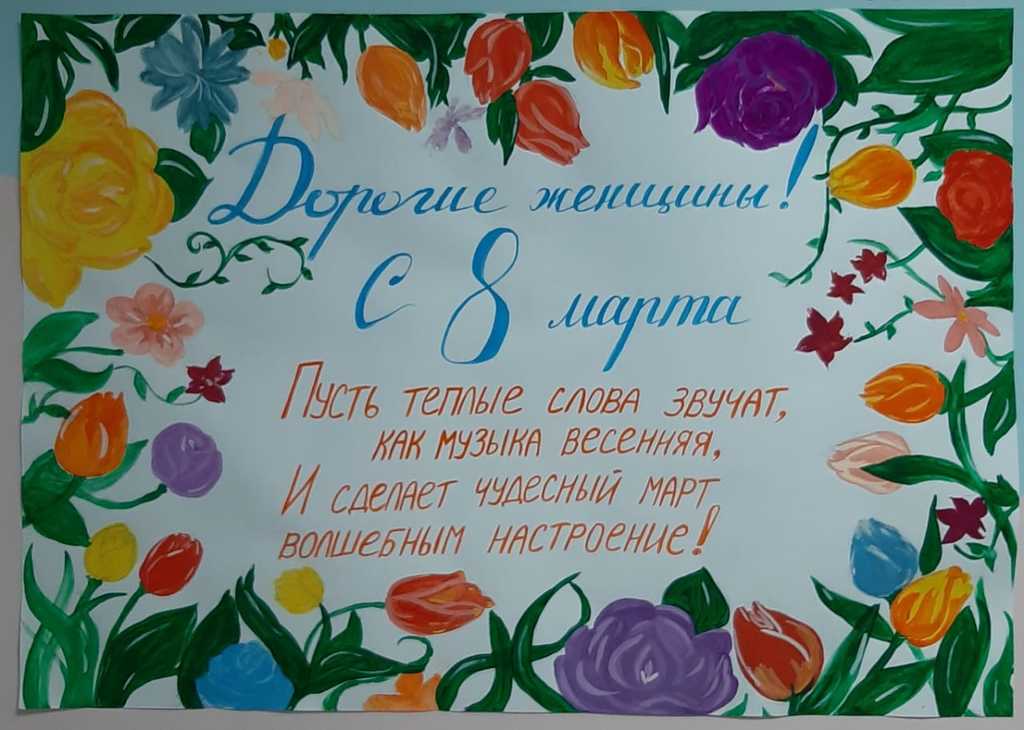 Дорогие женщины!
С 8 марта
Пусть теплые слова звучат,
как музыка весенняя,
И сделает чудесный март
волшебным настроение!